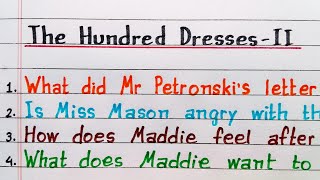 The Hundred Dresses-II
1. What did Mr Petronski's letter
2. Is Miss Mason angry with th
3. How does Maddie feel after
4. What does Maddie want to